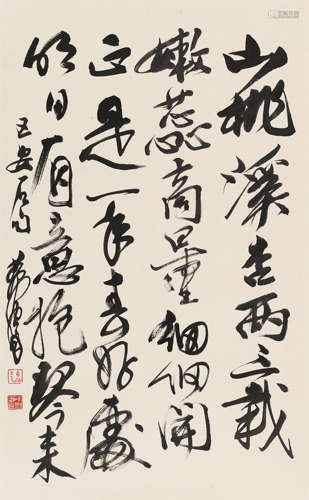 山桃溪杏两三栽
嫩蕊商量细细开
正是一年春好处
明日有意抱琴来